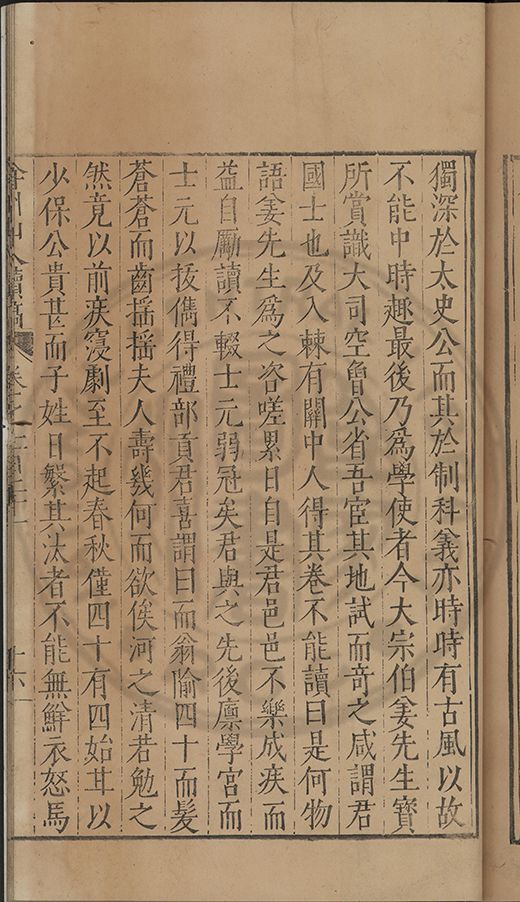 獨深於太史公而其於制科義亦時時有古風以故
不能中時趣最後乃為學使者今大宗伯姜先生寶
所賞識大司空曾公省吾宦其地試而奇之咸謂君
國士也及入棘有關中人得其卷不能讀曰是何物
語姜先生爲之咨嗟累日自是君邑邑不樂成疾而
益自勵讀不輟士元弱冠矣君與之先後廩學宮而
士元以拔儁得禮部貢君喜謂曰而翁隃四十而髮
蒼蒼而齒摇摇夫人壽幾何而欲俟河之清若勉之
然竟以前疾寖劇至不起春秋僅四十有四始其以
少保公貴甚而子姓日繁其汰者不能無鮮衣怒馬